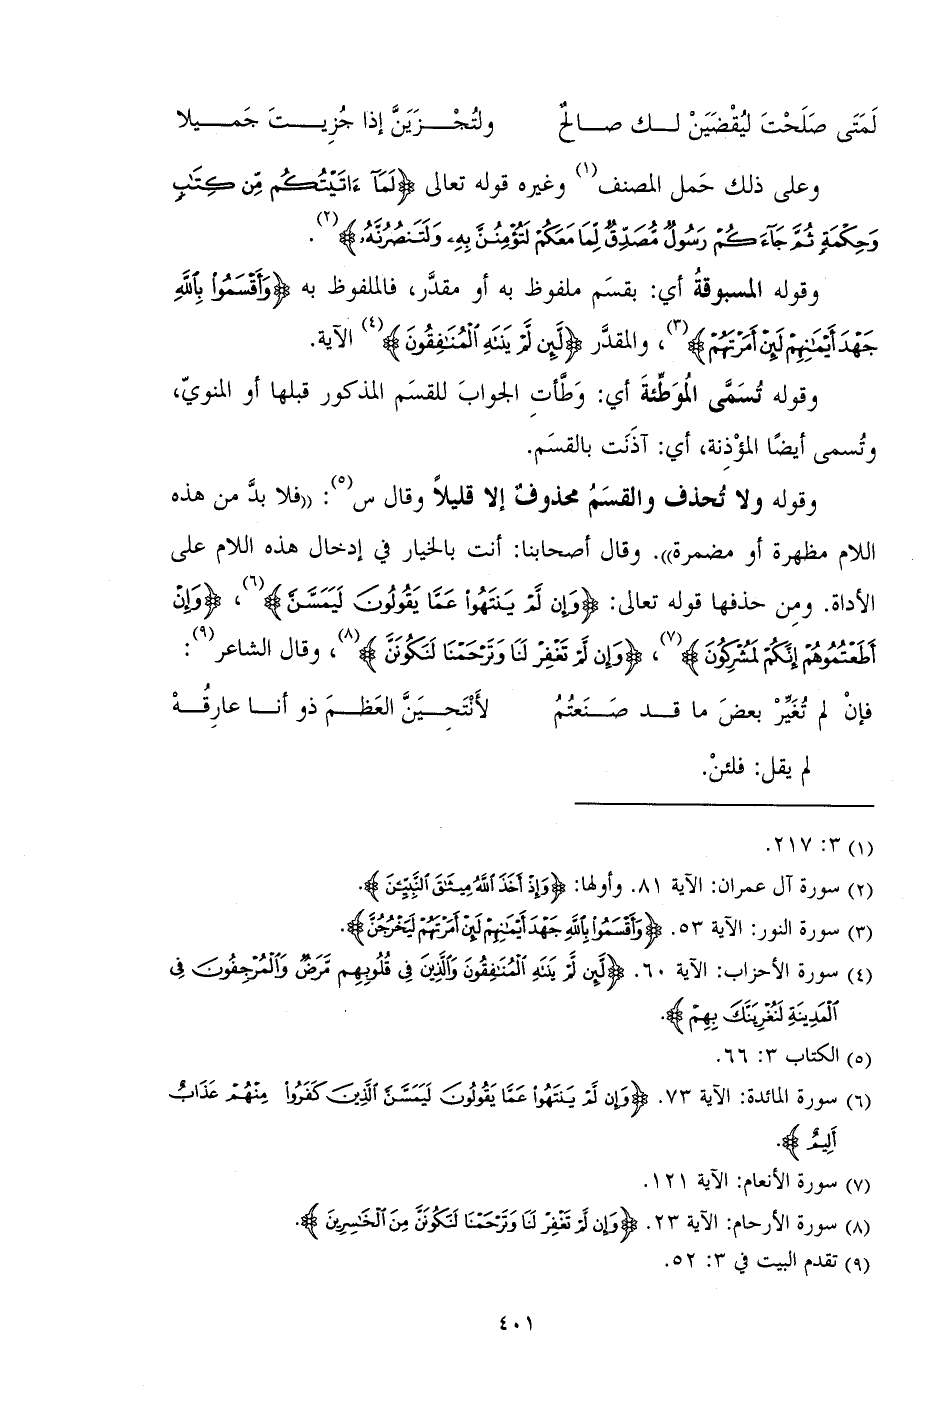 لَمَتَى صَلَحْتَ لَيُقْضَيَنْ لـك صـالحٌ ولتُجْـزَيَنَّ إذا جُزِيـتَ جَميـلا
وعلى ذلك حَمل المصنف(١) وغيره قوله تعالى ﴿لَمَآ ءَاتَيْتُكُم مِّن كِتَٰبٍ
وَحِكْمَةٍ ثُمَّ جَآءَكُمْ رَسُولٌ مُّصَدِّقٌ لِّمَا مَعَكُمْ لَتُؤْمِنُنَّ بِهِۦ وَلَتَنصُرُنَّهُۥ﴾(٢).
وقوله المسبوقةُ أي: بقسَم ملفوظ به أو مقدَّر، فالملفوظ به ﴿وَأَقْسَمُوا۟ بِٱللَّهِ
جَهْدَ أَيْمَٰنِهِمْ لَئِنْ أَمَرْتَهُمْ﴾(٣)، والمقدَّر ﴿لَّئِن لَّمْ يَنتَهِ ٱلْمُنَٰفِقُونَ﴾(٤) الآية.
وقوله تُسَمَّى الُموَطِّئةَ أي: وَطَّأتِ الجوابَ للقسَم المذكور قبلها أو المنويّ،
وتُسمى أيضًا المؤْذنة، أي: آذَنَت بالقسَم.
وقوله ولا تُحذف والقسَمُ محذوفٌ إلا قليلاً وقال س(٥): ((فلا بدَّ من هذه
اللام مظهرة أو مضمرة)). وقال أصحابنا: أنت بالخيار في إدخال هذه اللام على
الأداة. ومن حذفها قوله تعالى: ﴿وَإِن لَّمْ يَنتَهُوا۟ عَمَّا يَقُولُونَ لَيَمَسَّنَّ﴾(٦)، ﴿وَإِنْ
أَطَعْتُمُوهُمْ إِنَّكُمْ لَمُشْرِكُونَ﴾(٧)، ﴿وَإِن لَّمْ تَغْفِرْ لَنَا وَتَرْحَمْنَا لَنَكُونَنَّ﴾(٨)، وقال الشاعر(٩):
فإنْ لم تُغَيِّرْ بعضَ ما قـد صَـنَعتُمُ لأَنْتَحِيَـنَّ العَظـمَ ذو أنـا عارِقُـهْ
لم يقل: فلئنْ.
(١) ٣: ٢١٧.
(٢) سورة آل عمران: الآية ٨١. وأولها: ﴿وَإِذْ أَخَذَ ٱللَّهُ مِيثَٰقَ ٱلنَّبِيِّـۧنَ﴾.
(٣) سورة النور: الآية ٥٣. ﴿وَأَقْسَمُوا۟ بِٱللَّهِ جَهْدَ أَيْمَٰنِهِمْ لَئِنْ أَمَرْتَهُمْ لَيَخْرُجُنَّ﴾.
(٤) سورة الأحزاب: الآية ٦٠. ﴿لَّئِن لَّمْ يَنتَهِ ٱلْمُنَٰفِقُونَ وَٱلَّذِينَ فِى قُلُوبِهِم مَّرَضٌ وَٱلْمُرْجِفُونَ فِى
ٱلْمَدِينَةِ لَنُغْرِيَنَّكَ بِهِمْ﴾.
(٥) الكتاب ٣: ٦٦.
(٦) سورة المائدة: الآية ٧٣. ﴿وَإِن لَّمْ يَنتَهُوا۟ عَمَّا يَقُولُونَ لَيَمَسَّنَّ ٱلَّذِينَ كَفَرُوا۟ مِنْهُمْ عَذَابٌ
أَلِيمٌ﴾.
(٧) سورة الأنعام: الآية ١٢١.
(٨) سورة الأرحام: الآية ٢٣. ﴿وَإِن لَّمْ تَغْفِرْ لَنَا وَتَرْحَمْنَا لَنَكُونَنَّ مِنَ ٱلْخَٰسِرِينَ﴾.
(٩) تقدم البيت في ٣: ٥٢.
٤٠١